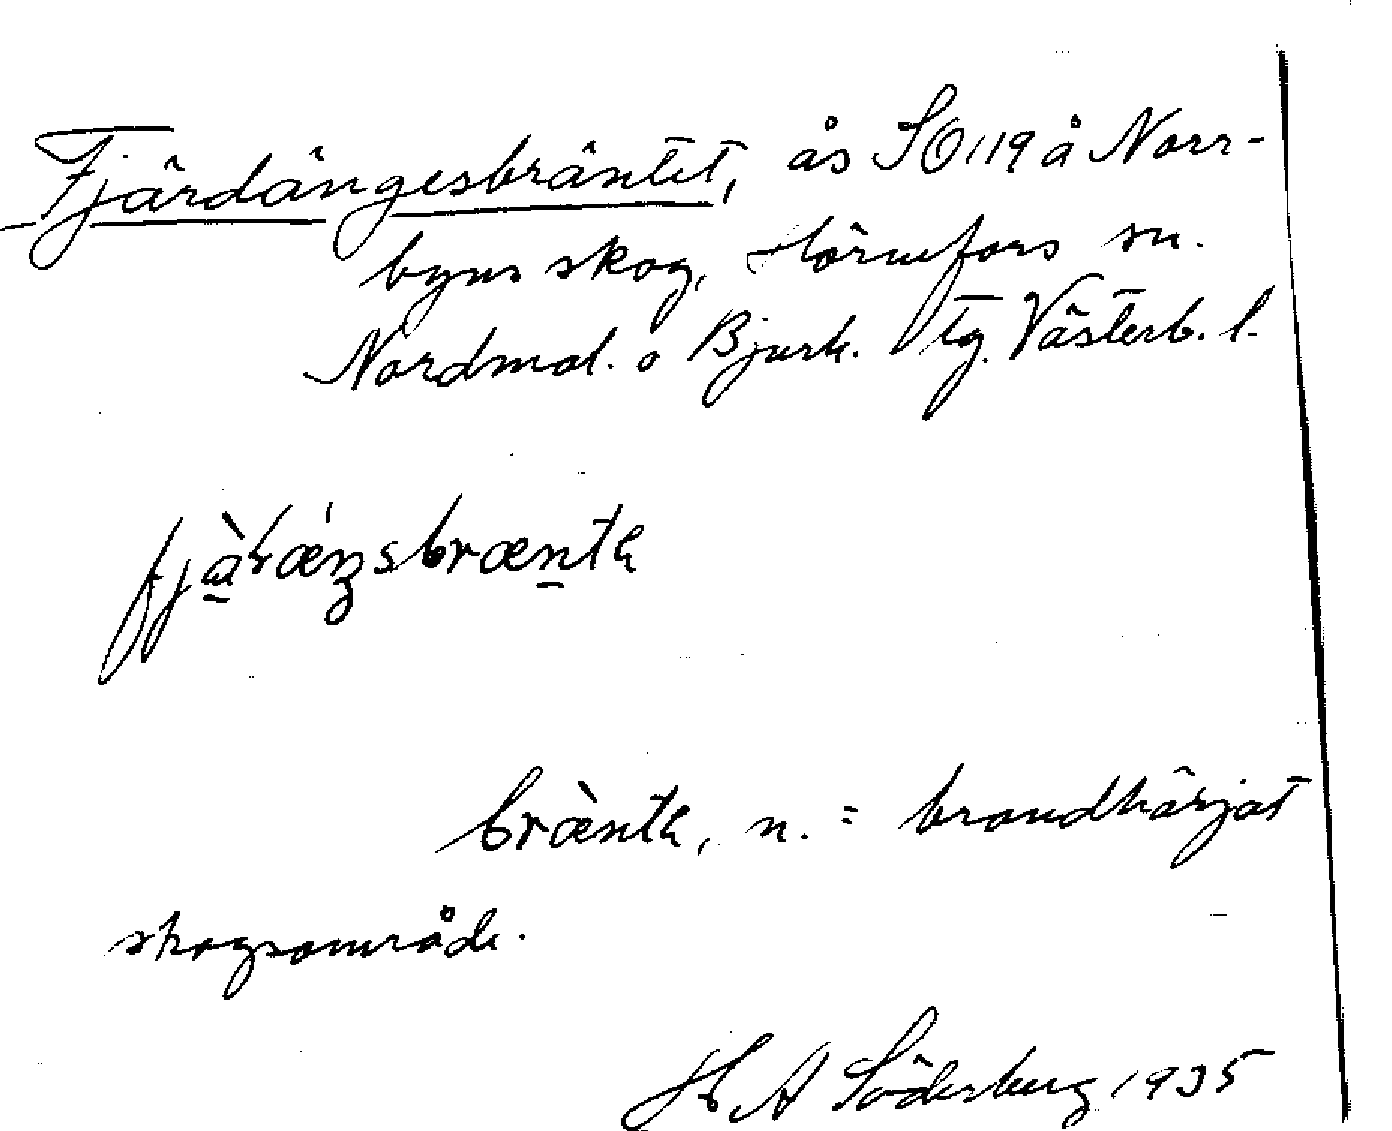 Fjärdängesbräntet, ås SO 119 å Norr-
byns skog, Hörnefors sn.
Nordmal. o Bjurh. tg. Västerb. l.
bræ̀ntɐ, n. = brandhärjat
skogsområde.
H A Söderberg 1935